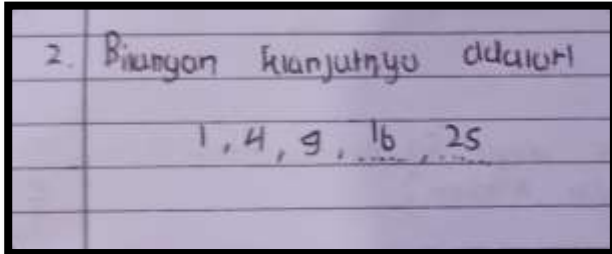 2. Bilangan selanjutnya adalah
1, 4, 9, 16, 25